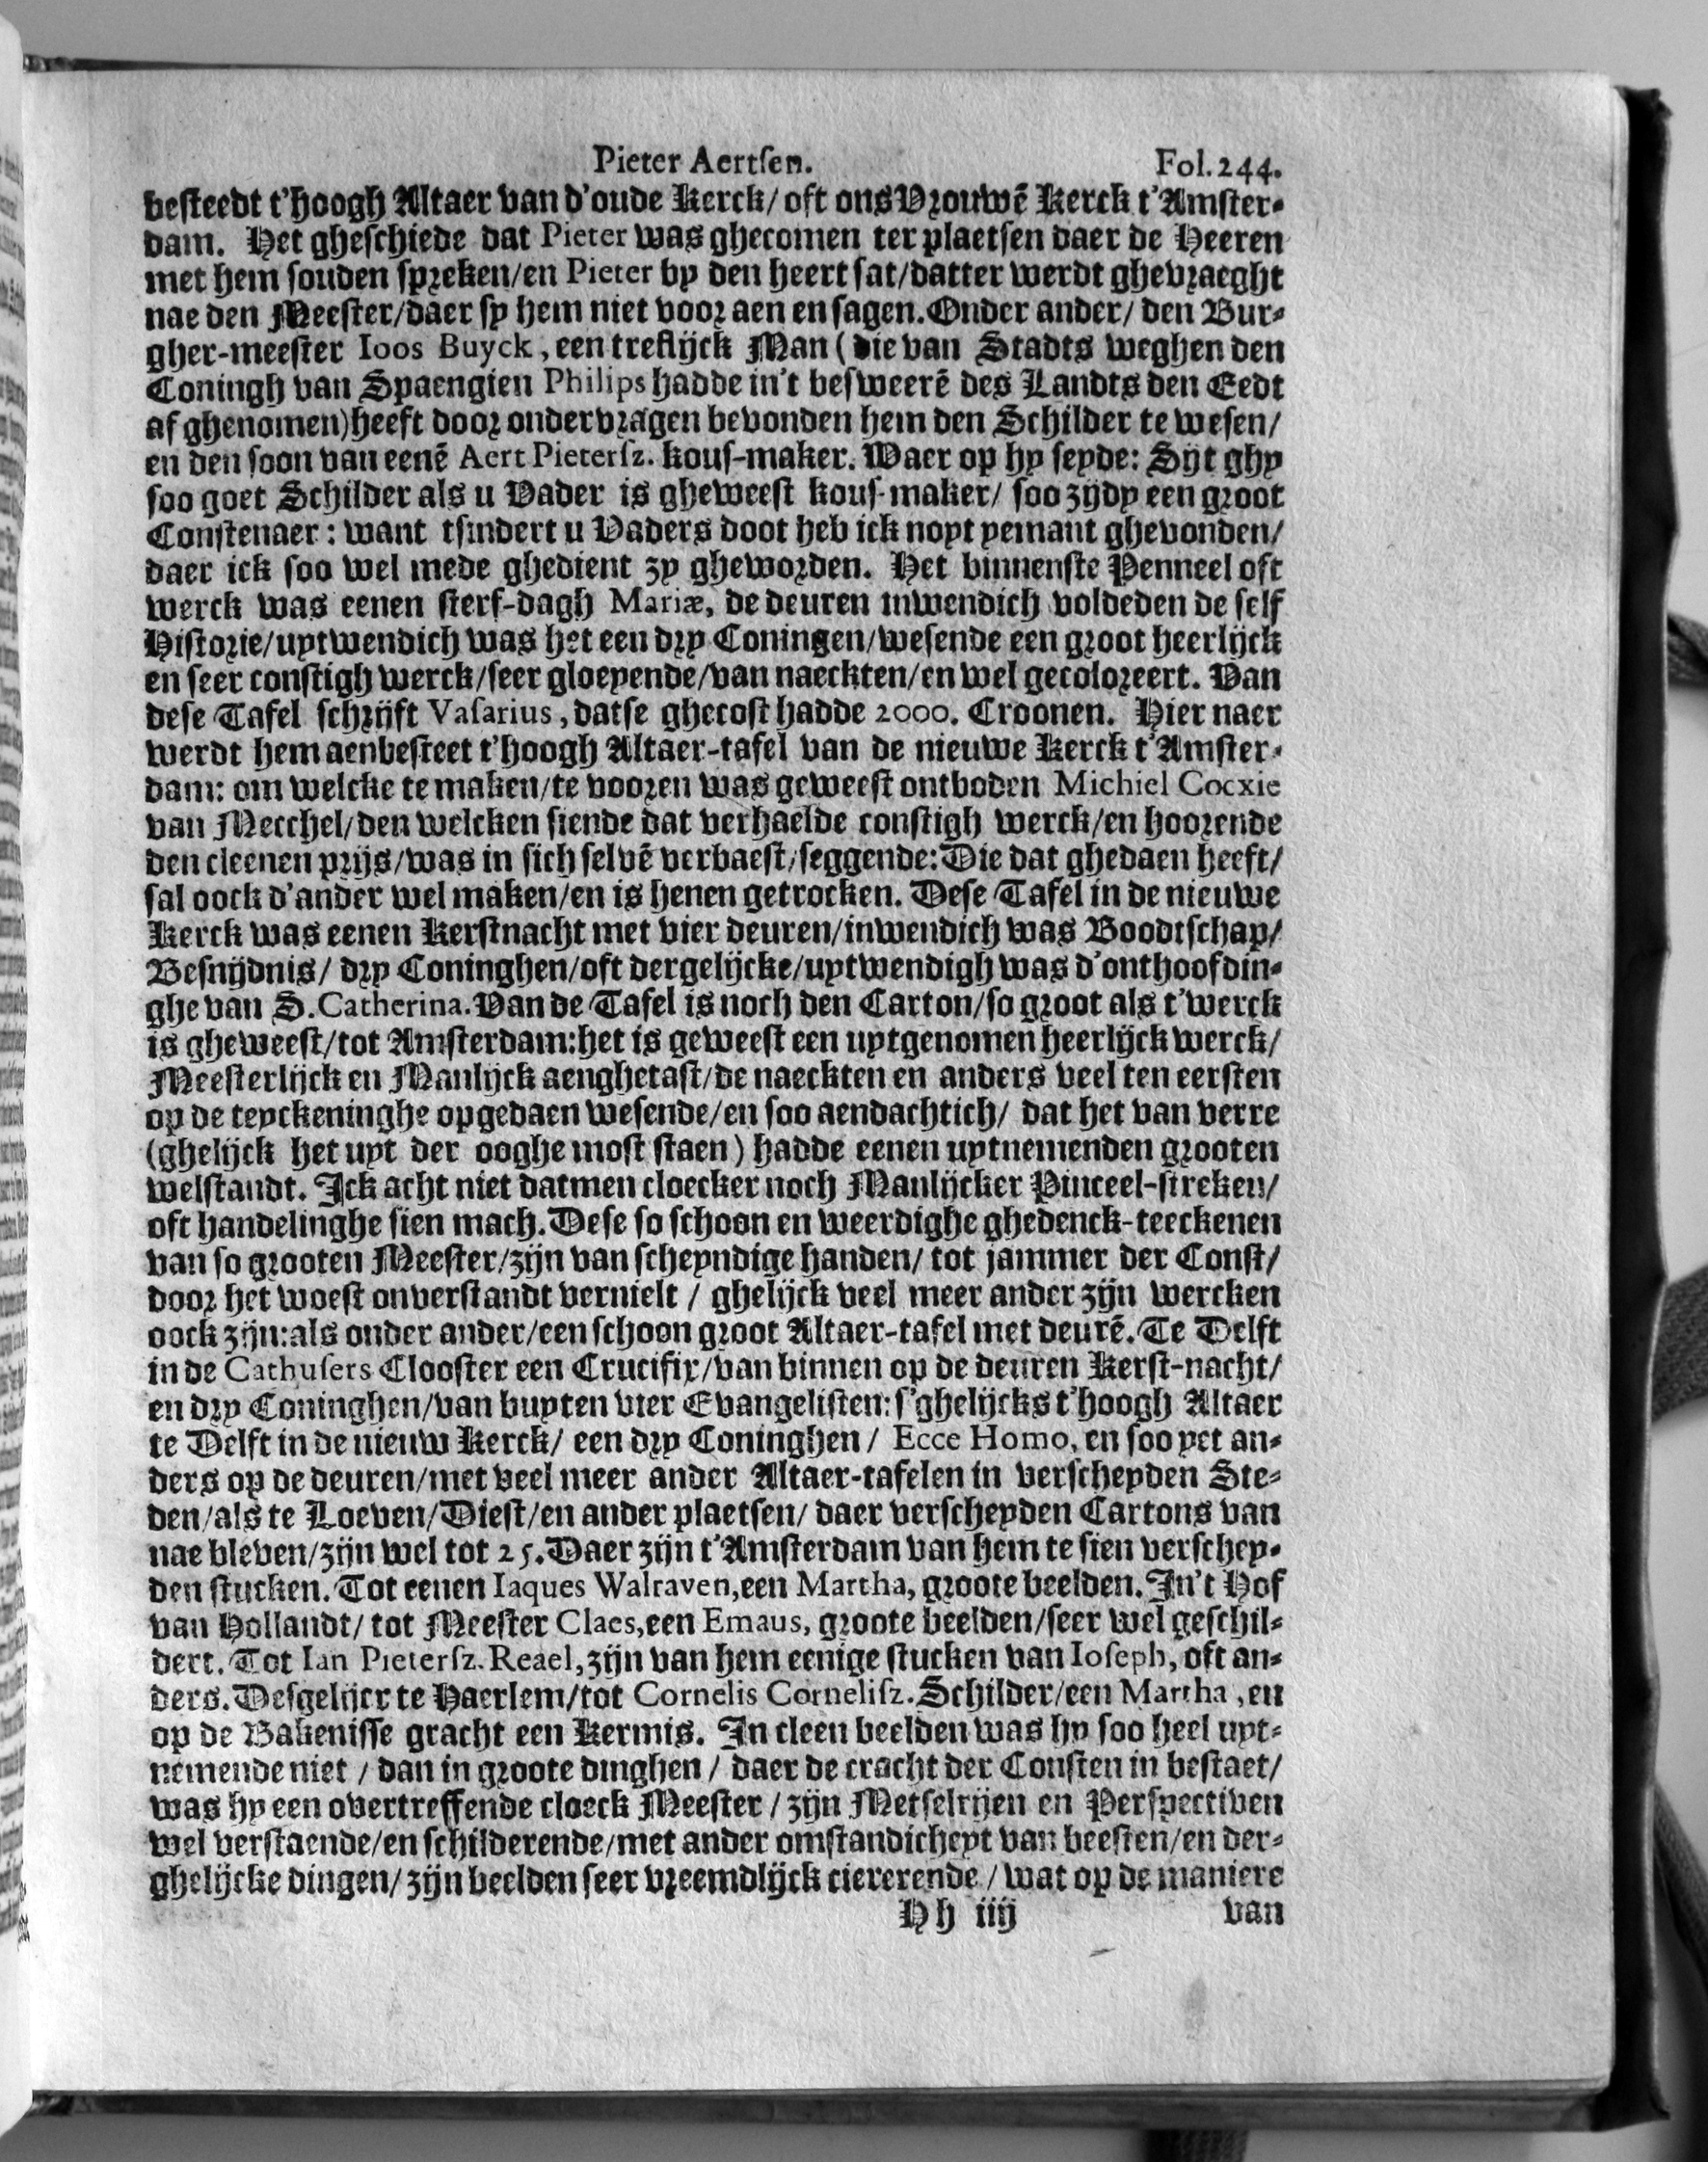 Pieter Aertsen. Fol. 244.
besteedt t'hoogh Altaer van d'oude Kerck/ oft ons Vrouwē Kerck t'Amster-
dam. Het gheschiede dat Pieter was ghecomen ter plaetsen daer de Heeren
met hem souden spreken/en Pieter by den heert sat/datter werdt ghevraeght
nae den Meester/daer sy hem niet voor aen en sagen. Onder ander/ den Bur-
gher-meester Ioos Buyck, een treflijck Man (die van Stadts weghen den
Coningh van Spaengien Philips hadde in't besweerē des Landts den Eedt
af ghenomen) heeft door ondervragen bevonden hem den Schilder te wesen/
en den soon van eenē Aert Pietersz. kous-maker. Waer op hy seyde: Sijt ghy
soo goet Schilder als u Vader is gheweest kous-maker/ soo zijdy een groot
Constenaer: want tsindert u Vaders doot heb ick noyt yemant ghevonden/
daer ick soo wel mede ghedient zy gheworden. Het binnenste Penneel oft
werck was eenen sterf-dagh Mariæ, de deuren inwendich voldeden de self
Historie/uytwendich was het een dry Coningen/wesende een groot heerlijck
en seer constigh werck/seer gloeyende/van naeckten/en wel gecoloreert. Van
dese Tafel schrijft Vasarius, datse ghecost hadde 2000. Croonen. Hier naer
werdt hem aenbesteet t'hoogh Altaer-tafel van de nieuwe Kerck t'Amster-
dam: om welcke te maken/te vooren was geweest ontboden Michiel Cocxie
van Mecchel/den welcken siende dat verhaelde constigh werck/en hoorende
den cleenen prijs/was in sich selvē verbaest/seggende: Die dat ghedaen heeft/
sal oock d'ander wel maken/en is henen getrocken. Dese Tafel in de nieuwe
Kerck was eenen Kerstnacht met vier deuren/inwendich was Boodtschap/
Besnijdnis/ dry Coninghen/oft dergelijcke/uytwendigh was d'onthoofdin-
ghe van S. Catherina. Van de Tafel is noch den Carton/so groot als t'werck
is gheweest/tot Amsterdam: het is geweest een uytgenomen heerlijck werck/
Meesterlijck en Manlijck aenghetast/de naeckten en anders veel ten eersten
op de teyckeninghe opgedaen wesende/en soo aendachtich/ dat het van verre
(ghelijck het uyt der ooghe most staen) hadde eenen uytnemenden grooten
welstandt. Ick acht niet datmen cloecker noch Manlijcker Pinceel-streken/
oft handelinghe sien mach. Dese so schoon en weerdighe ghedenck-teeckenen
van so grooten Meester/zijn van scheyndige handen/ tot jammer der Const/
door het woest onverstandt vernielt / ghelijck veel meer ander zijn wercken
oock zijn: als onder ander/een schoon groot Altaer-tafel met deurē. Te Delft
in de Cathusers Clooster een Crucifix/van binnen op de deuren Kerst-nacht/
en dry Coninghen/van buyten vier Evangelisten: s'ghelijcks t'hoogh Altaer
te Delft in de nieuw Kerck/ een dry Coninghen / Ecce Homo, en soo yet an-
ders op de deuren/met veel meer ander Altaer-tafelen in verscheyden Ste-
den/als te Loeven/Diest/en ander plaetsen/ daer verscheyden Cartons van
nae bleven/zijn wel tot 25. Daer zijn t'Amsterdam van hem te sien verschey-
den stucken. Tot eenen Iaques Walraven, een Martha, groote beelden. In't Hof
van Hollandt/ tot Meester Claes, een Emaus, groote beelden/seer wel geschil-
dert. Tot Ian Pietersz. Reael, zijn van hem eenige stucken van Ioseph, oft an-
ders. Desgelijcx te Haerlem/tot Cornelis Cornelisz. Schilder/een Martha, en
op de Bakenisse gracht een Kermis. In cleen beelden was hy soo heel uyt-
nemende niet / dan in groote dinghen / daer de cracht der Consten in bestaet/
was hy een overtreffende cloeck Meester / zijn Metselrijen en Perspectiven
wel verstaende/en schilderende/met ander omstandicheyt van beesten/en der-
ghelijcke dingen/ zijn beelden seer vreemdlijck ciererende / wat op de maniere
Hh iiij van